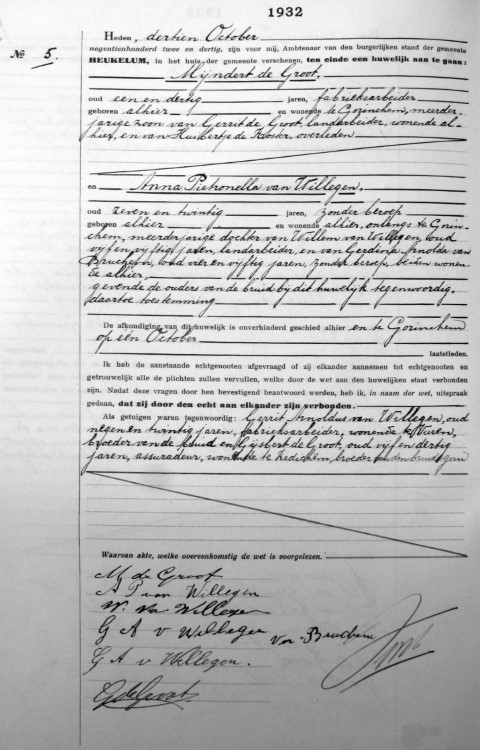 1932
Nº 5.
Heden, dertien October
negentienhonderd twee en dertig, zijn voor mij, Ambtenaar van den burgerlijken stand der gemeente
HEUKELUM, in het huis der gemeente verschenen, ten einde een huwelijk aan te gaan:
Mijndert de Groot,
oud een en dertig jaren, fabrieksarbeider
geboren alhier en wonende te Gorinchem, meerder-
jarige zoon van Gerrit de Groot, landarbeider, wonende al-
hier, en van Huibertje de Koster, overleden
en Anna Pietronella van Willegen,
oud zeven en twintig jaren, zonder beroep
geboren alhier en wonende alhier, onlangs te Gorin-
chem, meerderjarige dochter van Willem van Willegen, oud
vijf en vijftig jaren, landarbeider, en van Gerdina Arnolda van
Bruchem, oud vier en vijftig jaren, zonder beroep, beiden wonen-
de alhier,
gevende de ouders van de bruid bij dit huwelijk tegenwoordig,
daartoe toestemming
De afkondiging van dit huwelijk is onverhinderd geschied alhier en te Gorinchem
op één October
laatstleden.
Ik heb de aanstaande echtgenooten afgevraagd of zij elkander aannemen tot echtgenooten en
getrouwelijk alle de plichten zullen vervullen, welke door de wet aan den huwelijken staat verbonden
zijn. Nadat deze vragen door hen bevestigend beantwoord werden, heb ik, in naam der wet, uitspraak
gedaan, dat zij door den echt aan elkander zijn verbonden.
Als getuigen waren tegenwoordig: Gerrit Arnoldus van Willegen, oud
negen en twintig jaren, fabrieksarbeider, wonende te Vuren,
broeder van de bruid en Gijsbert de Groot, oud vijf en dertig
jaren, assuradeur, wonende te Kedichem, broeder van den bruidegom
Waarvan akte, welke overeenkomstig de wet is voorgelezen.
M de Groot
A P van Willegen
W. van Willegen
G A v Willegen van-Bruchem
G A v Willegen.
G de Groot